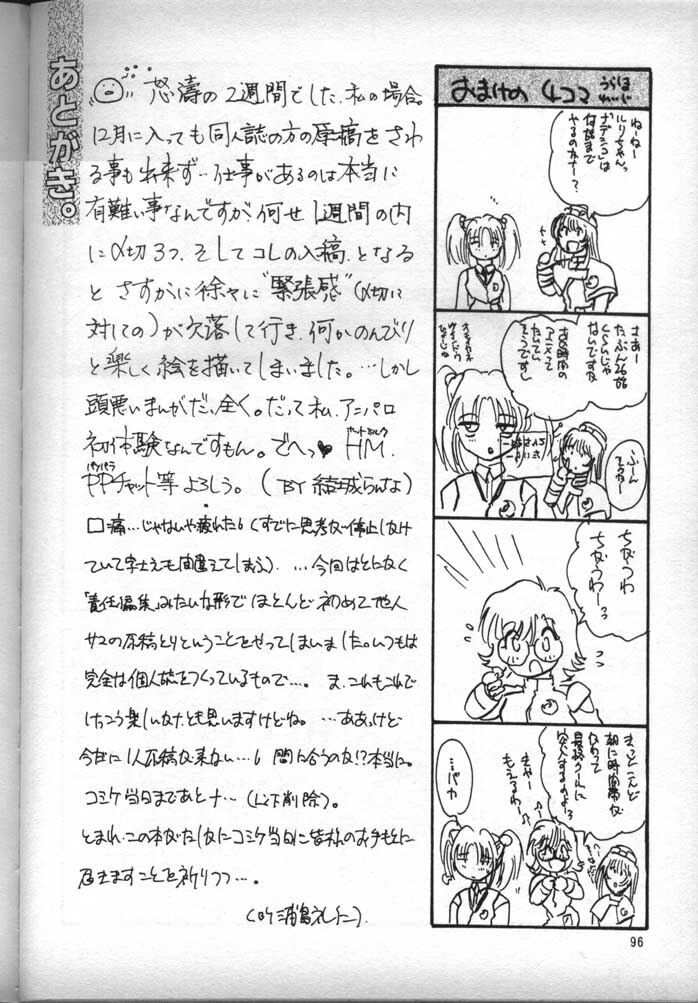 あとがき。
怒濤の2週間でした、私の場合。
12月に入っても同人誌の方の原稿をさわ
る事も出来ず…仕事があるのは本当に
有難い事なんですが、何せ1週間の内
に〆切3つ、そしてコレの入稿、となる
と さすがに徐々に"緊張感"(〆切に
対しての)が欠落して行き、何かのんびり
と楽しく絵を描いてしまいました。…しかし
頭悪いまんがだい、全く。だって私、アニパロ
初体験なんですもん。でへっ♥ HM、
PPチャット等よろしう。(BY 結城らんな)
痛…じゃないや疲れた
ていて字さえも間違えてしまふ)。…今回はとにかく
「責任編集」みたいな形で ほとんど初めて他人
サマの原稿とりということをやってしまいました。いつもは
完全な個人誌をつくっているもので…。ま、これもこれで
けっこう楽しいかなとも思いますけどね。…ああっけど
今だに1人原稿が来ない… 間に合うのか!?本当に。
コミケ当日まであと十…(以下削除)。
ともあれ、この本がたしかにコミケ当日に皆様のお手もとに
届きますことを祈りつつ…。
おまけの 4コマ
ねーねー
ルリちゃんっ
ナデシコは
何話まで
やるのかなー?
さあー
たぶん26話
くらいじゃ
ないですか
アニメって
たいてい
そうですし
ふーん
ちがうわ
ちがうわーっ
きっとこんど
朝に時間帯が
かわって
最終クールに
突入するのよっ
きゃー
もえるわー
…バカ
96